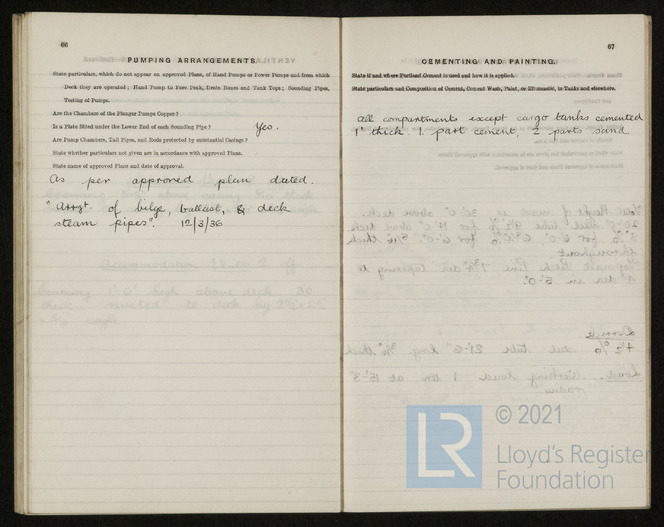 66
PUMPING ARRANGEMENTS.
State particulars, which do not appear on approved Plans, of Hand Pumps or Power Pumps and from which
Deck they are operated; Hand Pump to Fore Peak, Drain Boxes and Tank Tops; Sounding Pipes,
Testing of Pumps.
Are the Chambers of the Plunger Pumps Copper?
Is a Plate fitted under the Lower End of each Sounding Pipe? Yes.
Are Pump Chambers, Tail Pipes, and Rods protected by substantial Casings?
State whether particulars not given are in accordance with approved Plans.
State name of approved Plans and date of approval.
As per approved plan dated.
"Arrgt. of bilge, ballast, & deck
steam pipes". 12/3/36
67
CEMENTING AND PAINTING.
State if and where Portland Cement is used and how it is applied.
State particulars and Composition of Cement, Cement Wash, Paint, or Bitumastic, in Tanks and elsewhere.
All compartments except cargo tanks cemented
1" thick. 1 part cement, 2 parts sand.
LR
© 2021
Lloyd's Register
Foundation